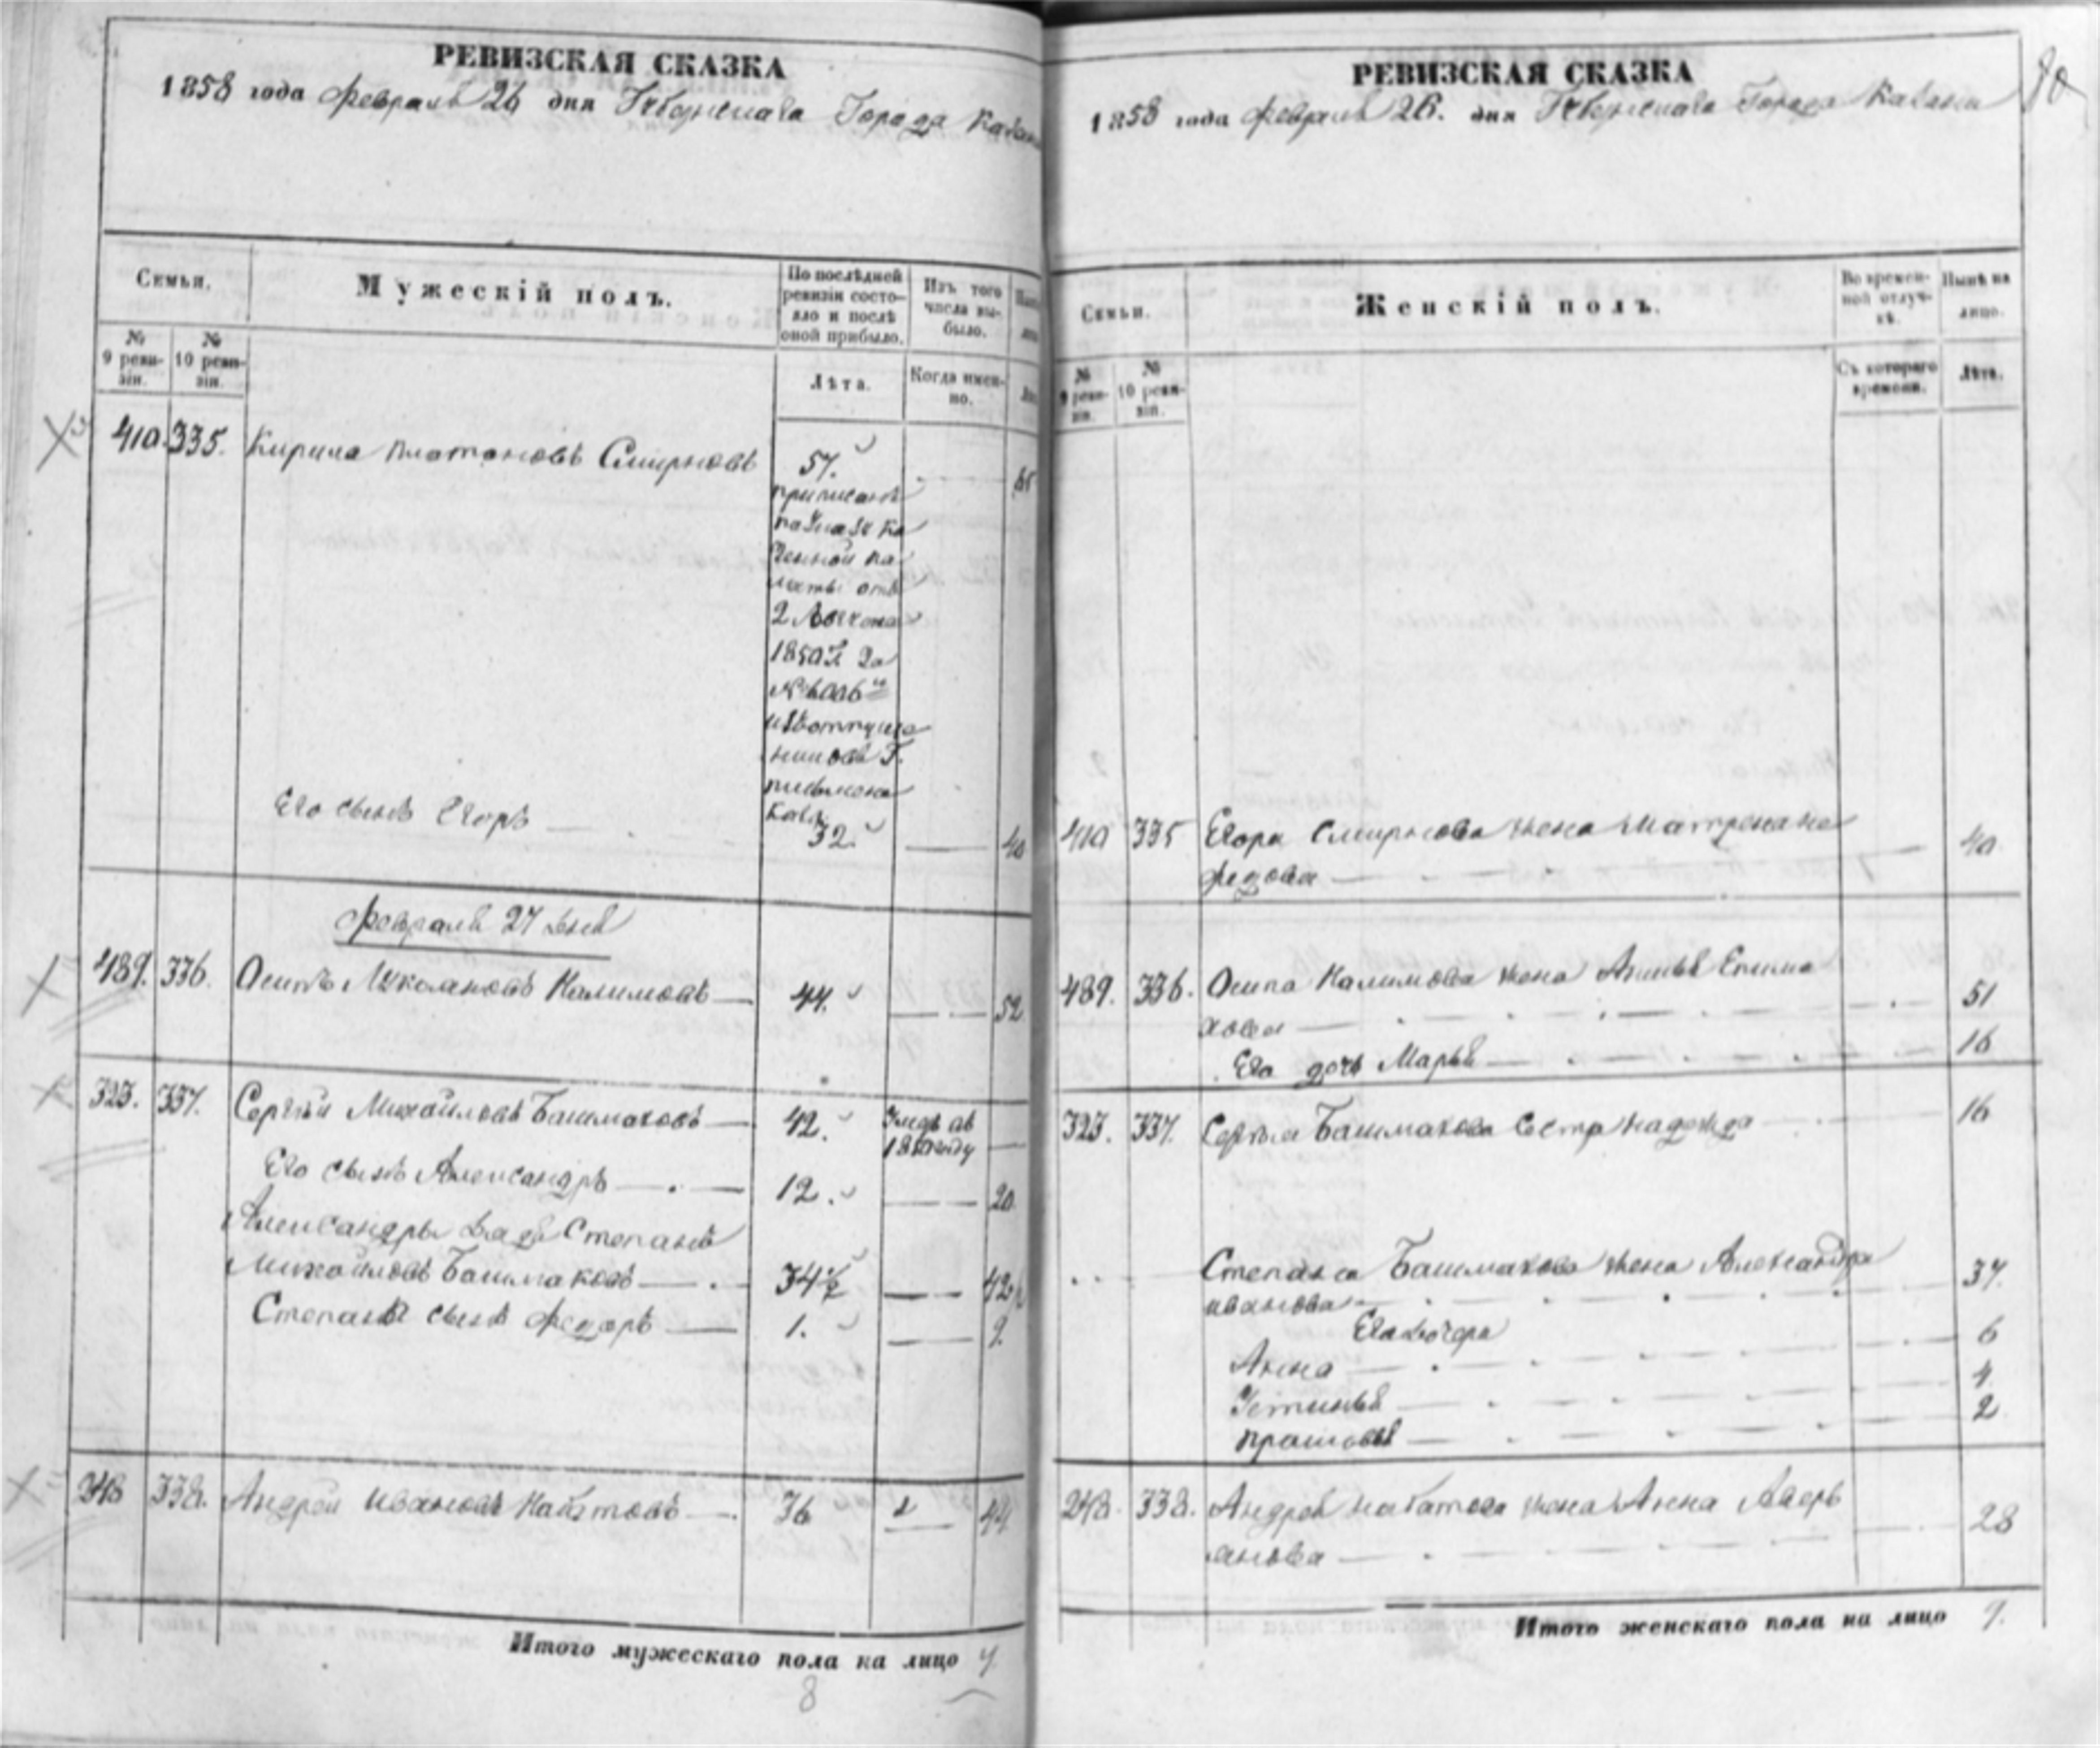 РЕВИЗСКАЯ СКАЗКА
1858 года Февраля 26 дня Города
Семьи.
Мужескій полъ.
По послѣдней ревизіи состо-
яло и послѣ
оной прибыло.
Изъ того
числа вы-
было.
№
9 реви-
зіи.
№
10 реви-
зіи.
Лѣта.
Когда имен-
но.
410. 335. Кирила Платоновъ Смирновъ 57. 65
приписанъ
по указу Ка
зенной па
латы отъ
2
1850 г за
№
Его сынъ Егоръ 32. 40
Февраля 27 дня
489. 336. Осипъ Калимовъ 44. 52
323. 337. Сергѣй Михайловъ Башмаковъ 42.
Его сынъ Александръ 12. 20
Александры дядя Степанъ
Михайловъ Башмаковъ 34½ 42½
Степана сынъ Федоръ 1. 9.
248 338. Андрей Ивановъ Набатовъ 36 44
Итого мужескаго пола на лицо 7.
8
РЕВИЗСКАЯ СКАЗКА
1858 года Февраля 26. дня Города Казани
80
Семьи.
Женскій полъ.
Во времен-
ной отлуч-
кѣ.
Нынѣ на
лицо.
№
9 реви-
зіи.
№
10 реви-
зіи.
Съ котораго
времени.
Лѣта.
410 335 Егора Смирнова жена Матрена Не
федова 40
489. 336. Осипа Калимова жена 51
Его дочь Марья 16
323. 337. Сергѣя Башмакова сестра Надежда 16
Степана Башмакова жена Александра
Иванова 37.
Его дочери
Анна 6
Устинья 4
Прасковья 2
248. 338. Андрея Набатова жена Анна Аверь
янова 28
Итого женскаго пола на лицо 9.